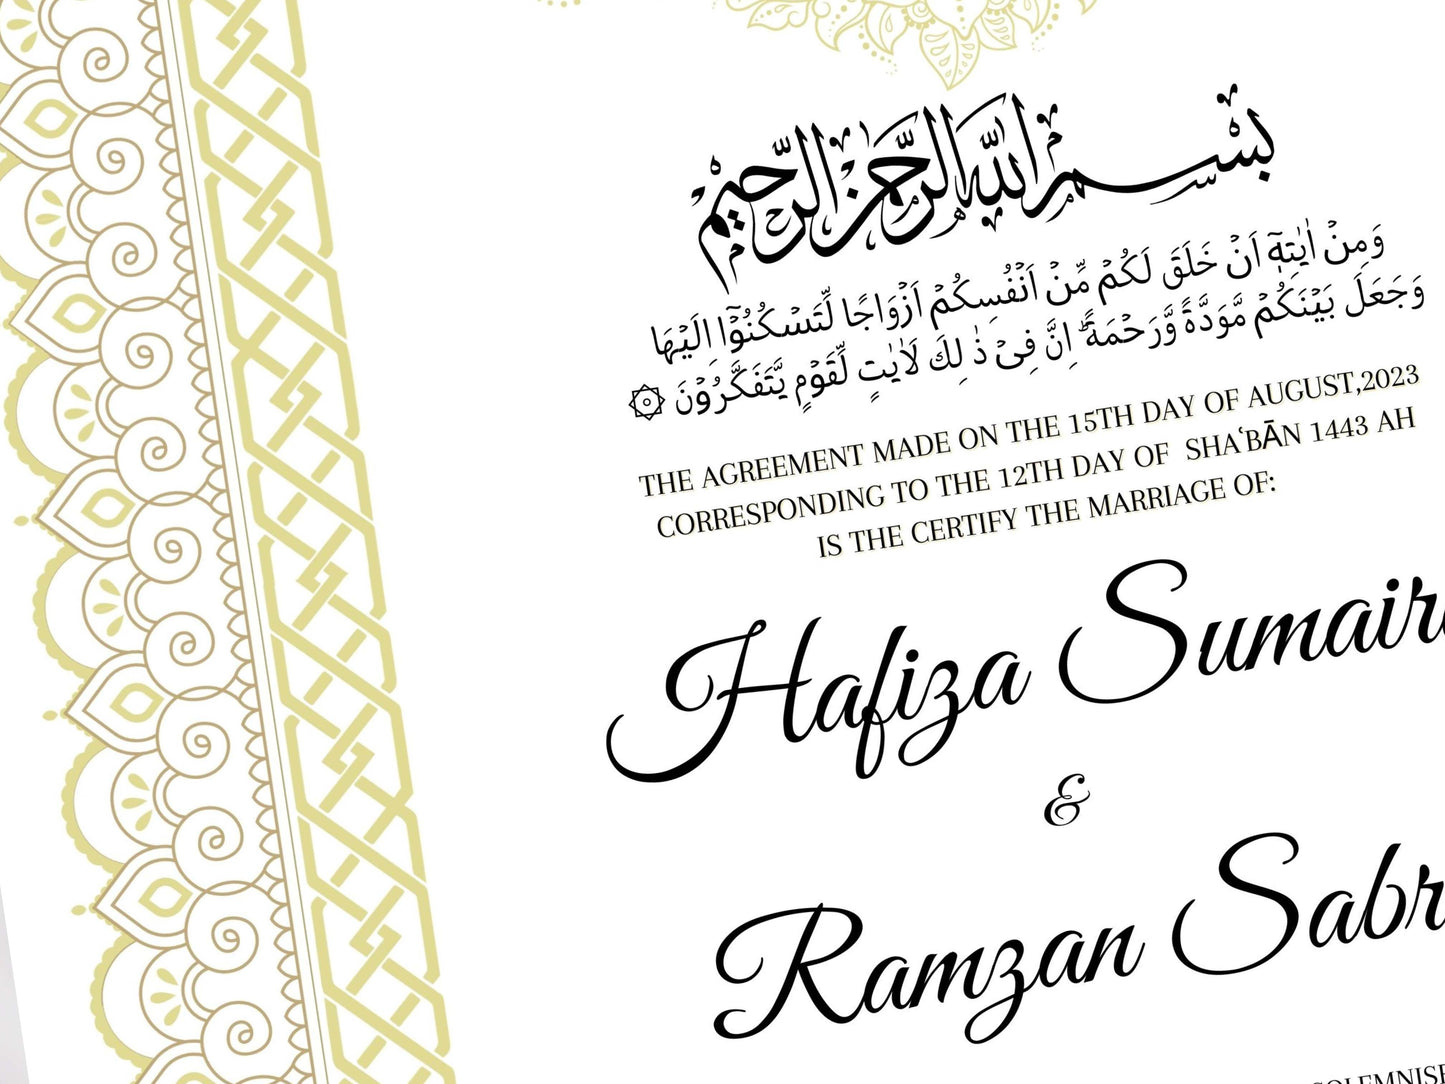 بسم الله الرحمن الرحيم
وَمِنْ اٰيٰتِهٖٓ اَنْ خَلَقَ لَكُمْ مِّنْ اَنْفُسِكُمْ اَزْوَاجًا لِّتَسْكُنُوْٓا اِلَيْهَا
وَجَعَلَ بَيْنَكُمْ مَّوَدَّةً وَّرَحْمَةً ؕ اِنَّ فِىْ ذٰ لِكَ لَاٰيٰتٍ لِّقَوْمٍ يَّتَفَكَّرُوْنَ ۞
THE AGREEMENT MADE ON THE 15TH DAY OF AUGUST,2023
CORRESPONDING TO THE 12TH DAY OF SHAʿBĀN 1443 AH
IS THE CERTIFY THE MARRIAGE OF:
Hafiza Sumair
&
Ramzan Sabr
OLEMNISE